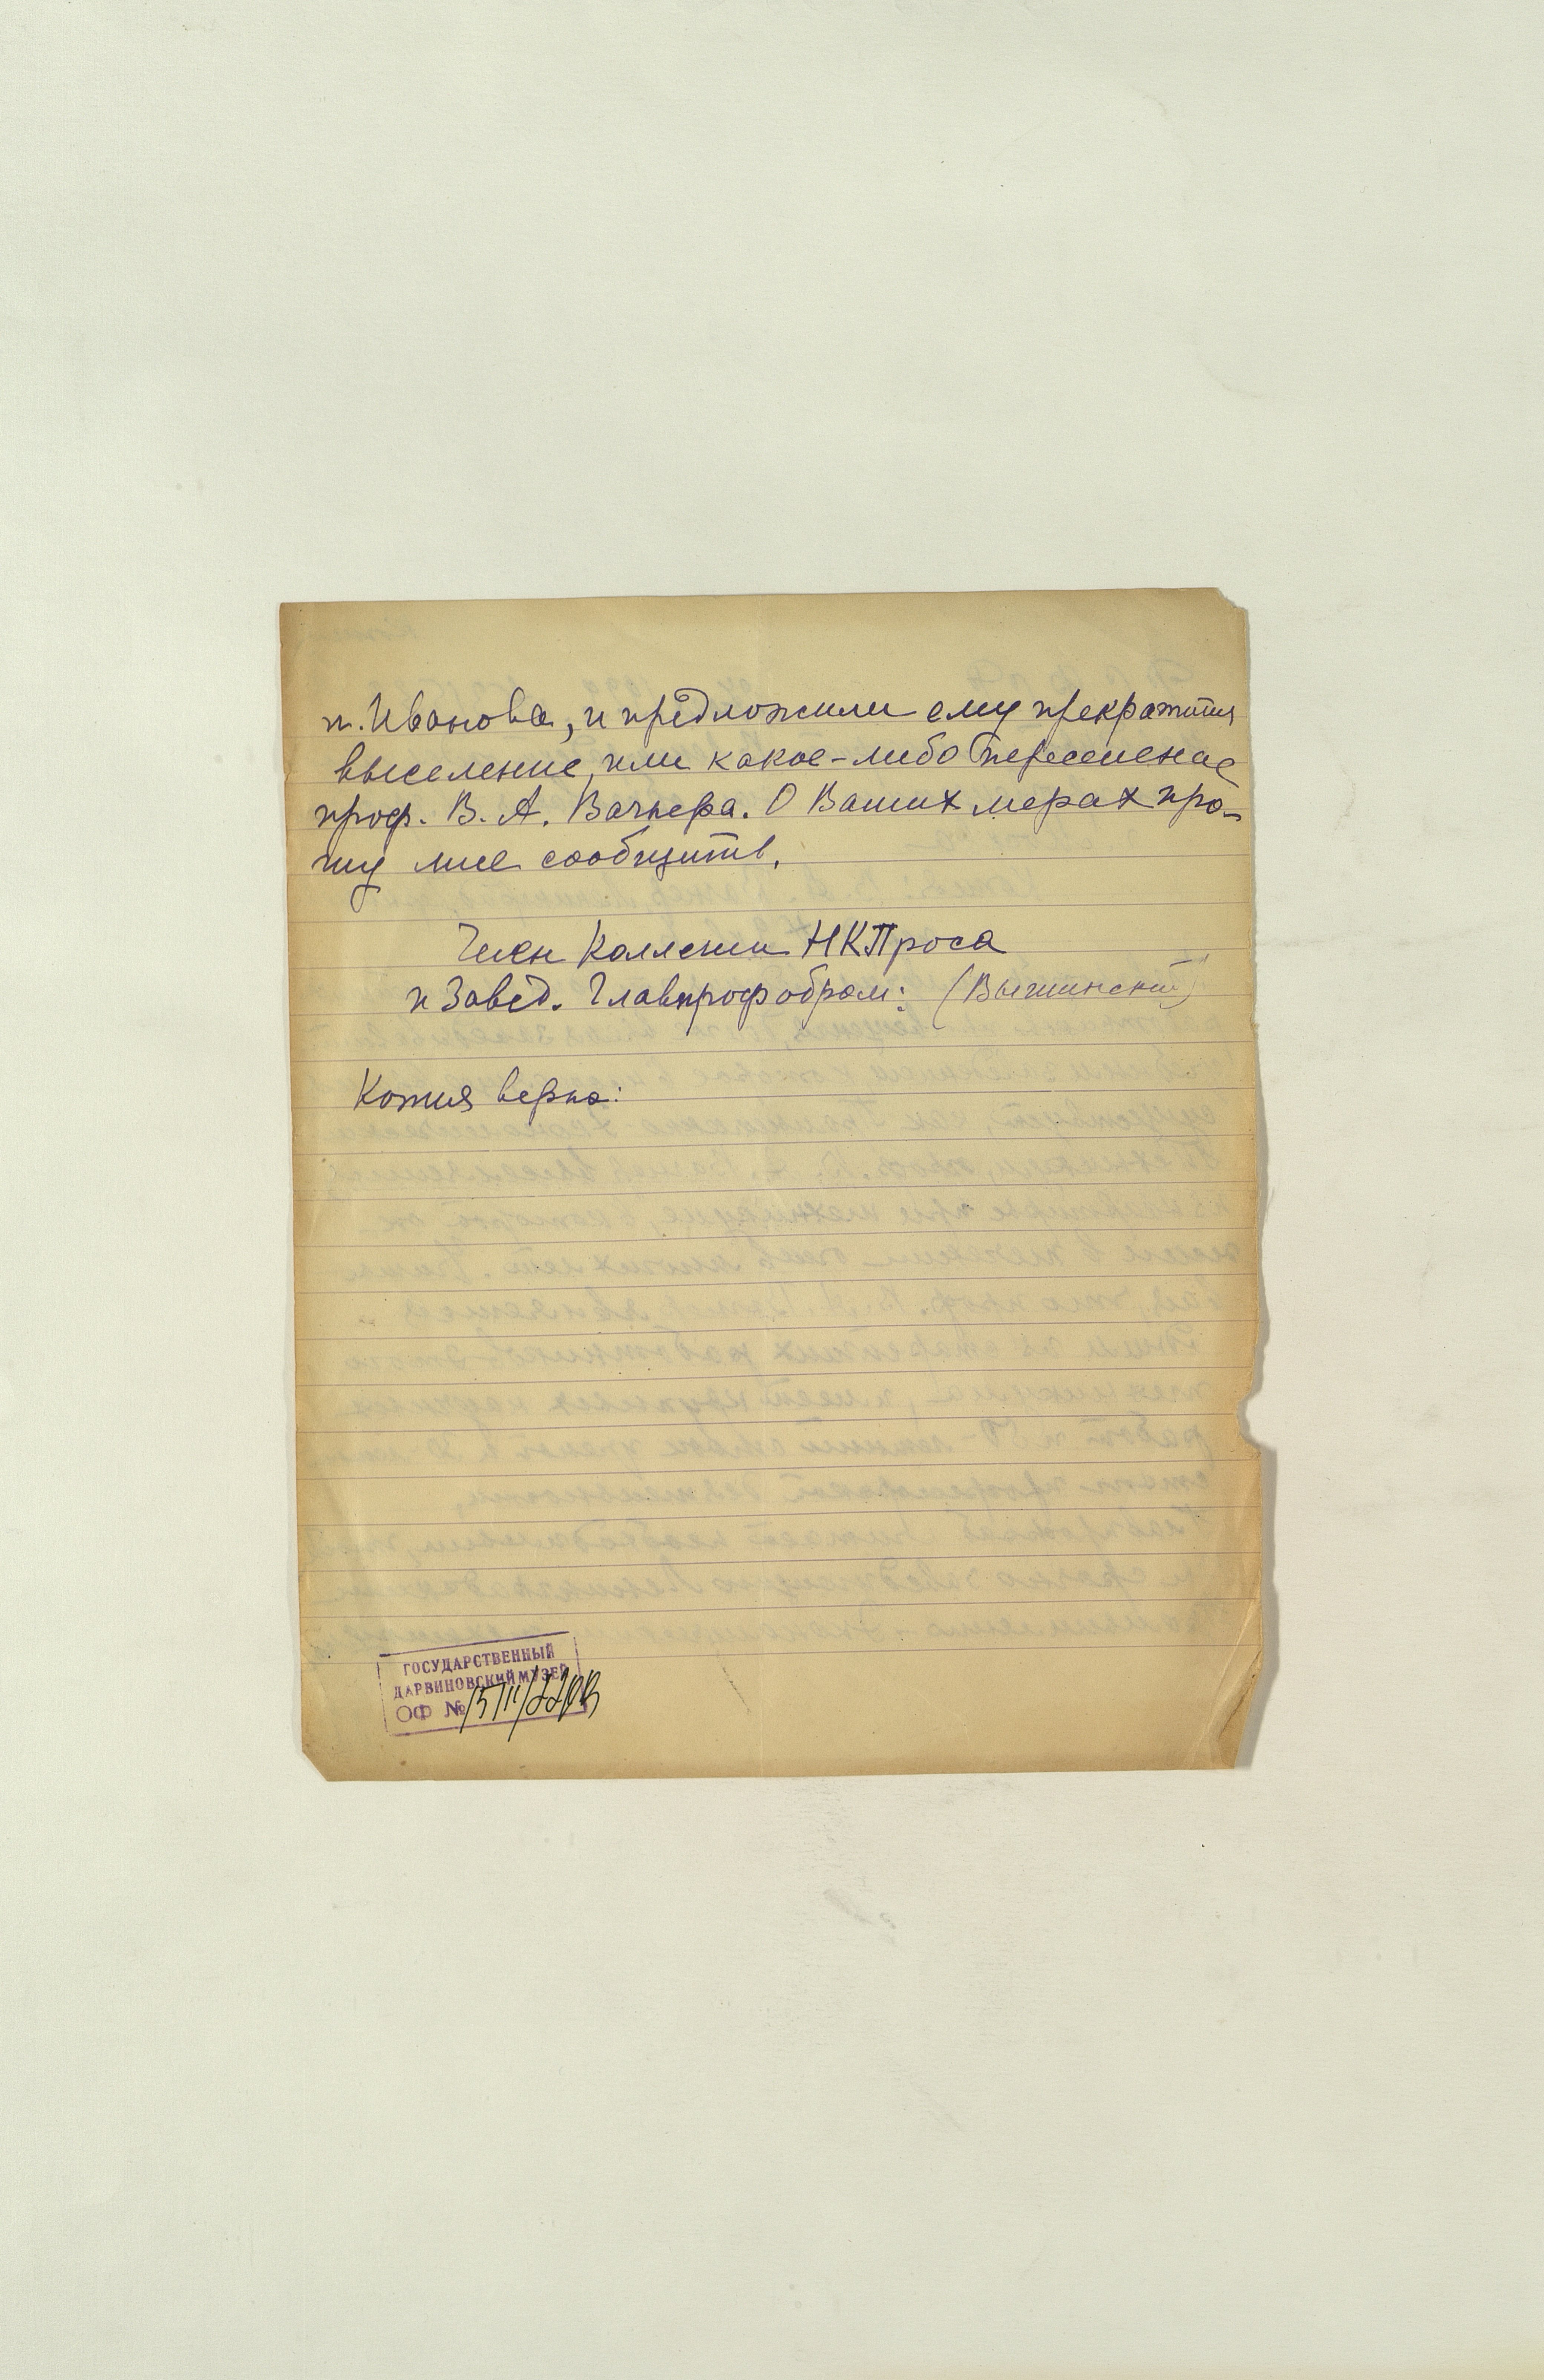 т. Иванова, и предложили ему прекратить
выселение, или какое-либо переселение
проф. В. А. Вагнера. О Ваших мерах про-
шу мне сообщить.
Член Коллегии НКПроса
и Завед. Главпрофобром: (Вышинский)
Копия верна:
ГОСУДАРСТВЕННЫЙ
ДАРВИНОВСКИЙ МУЗЕЙ
ОФ №